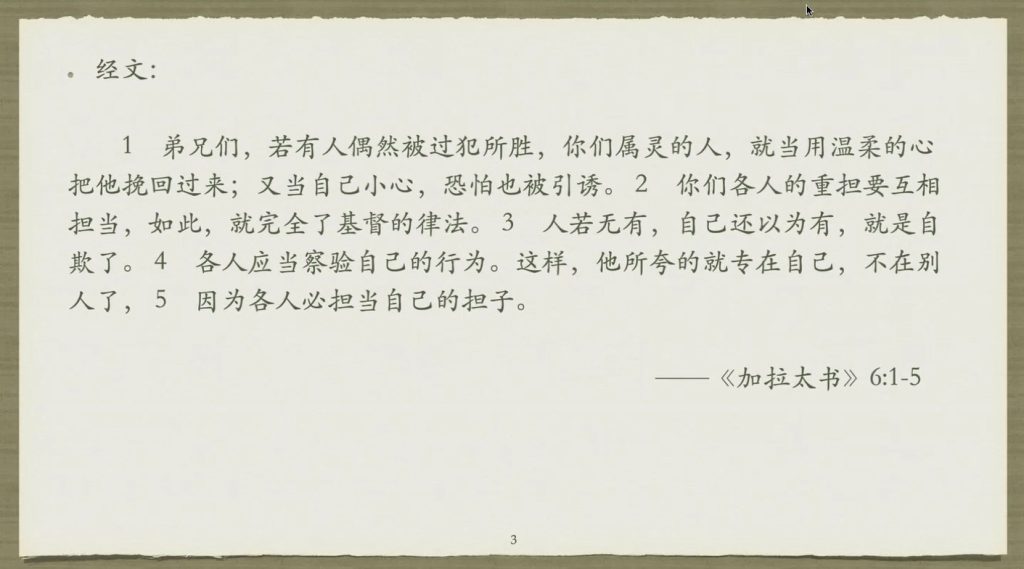 • 经文：
1 弟兄们，若有人偶然被过犯所胜，你们属灵的人，就当用温柔的心
把他挽回过来；又当自己小心，恐怕也被引诱。2 你们各人的重担要互相
担当，如此，就完全了基督的律法。3 人若无有，自己还以为有，就是自
欺了。4 各人应当察验自己的行为。这样，他所夸的就专在自己，不在别
人了，5 因为各人必担当自己的担子。
——《加拉太书》6:1-5
3